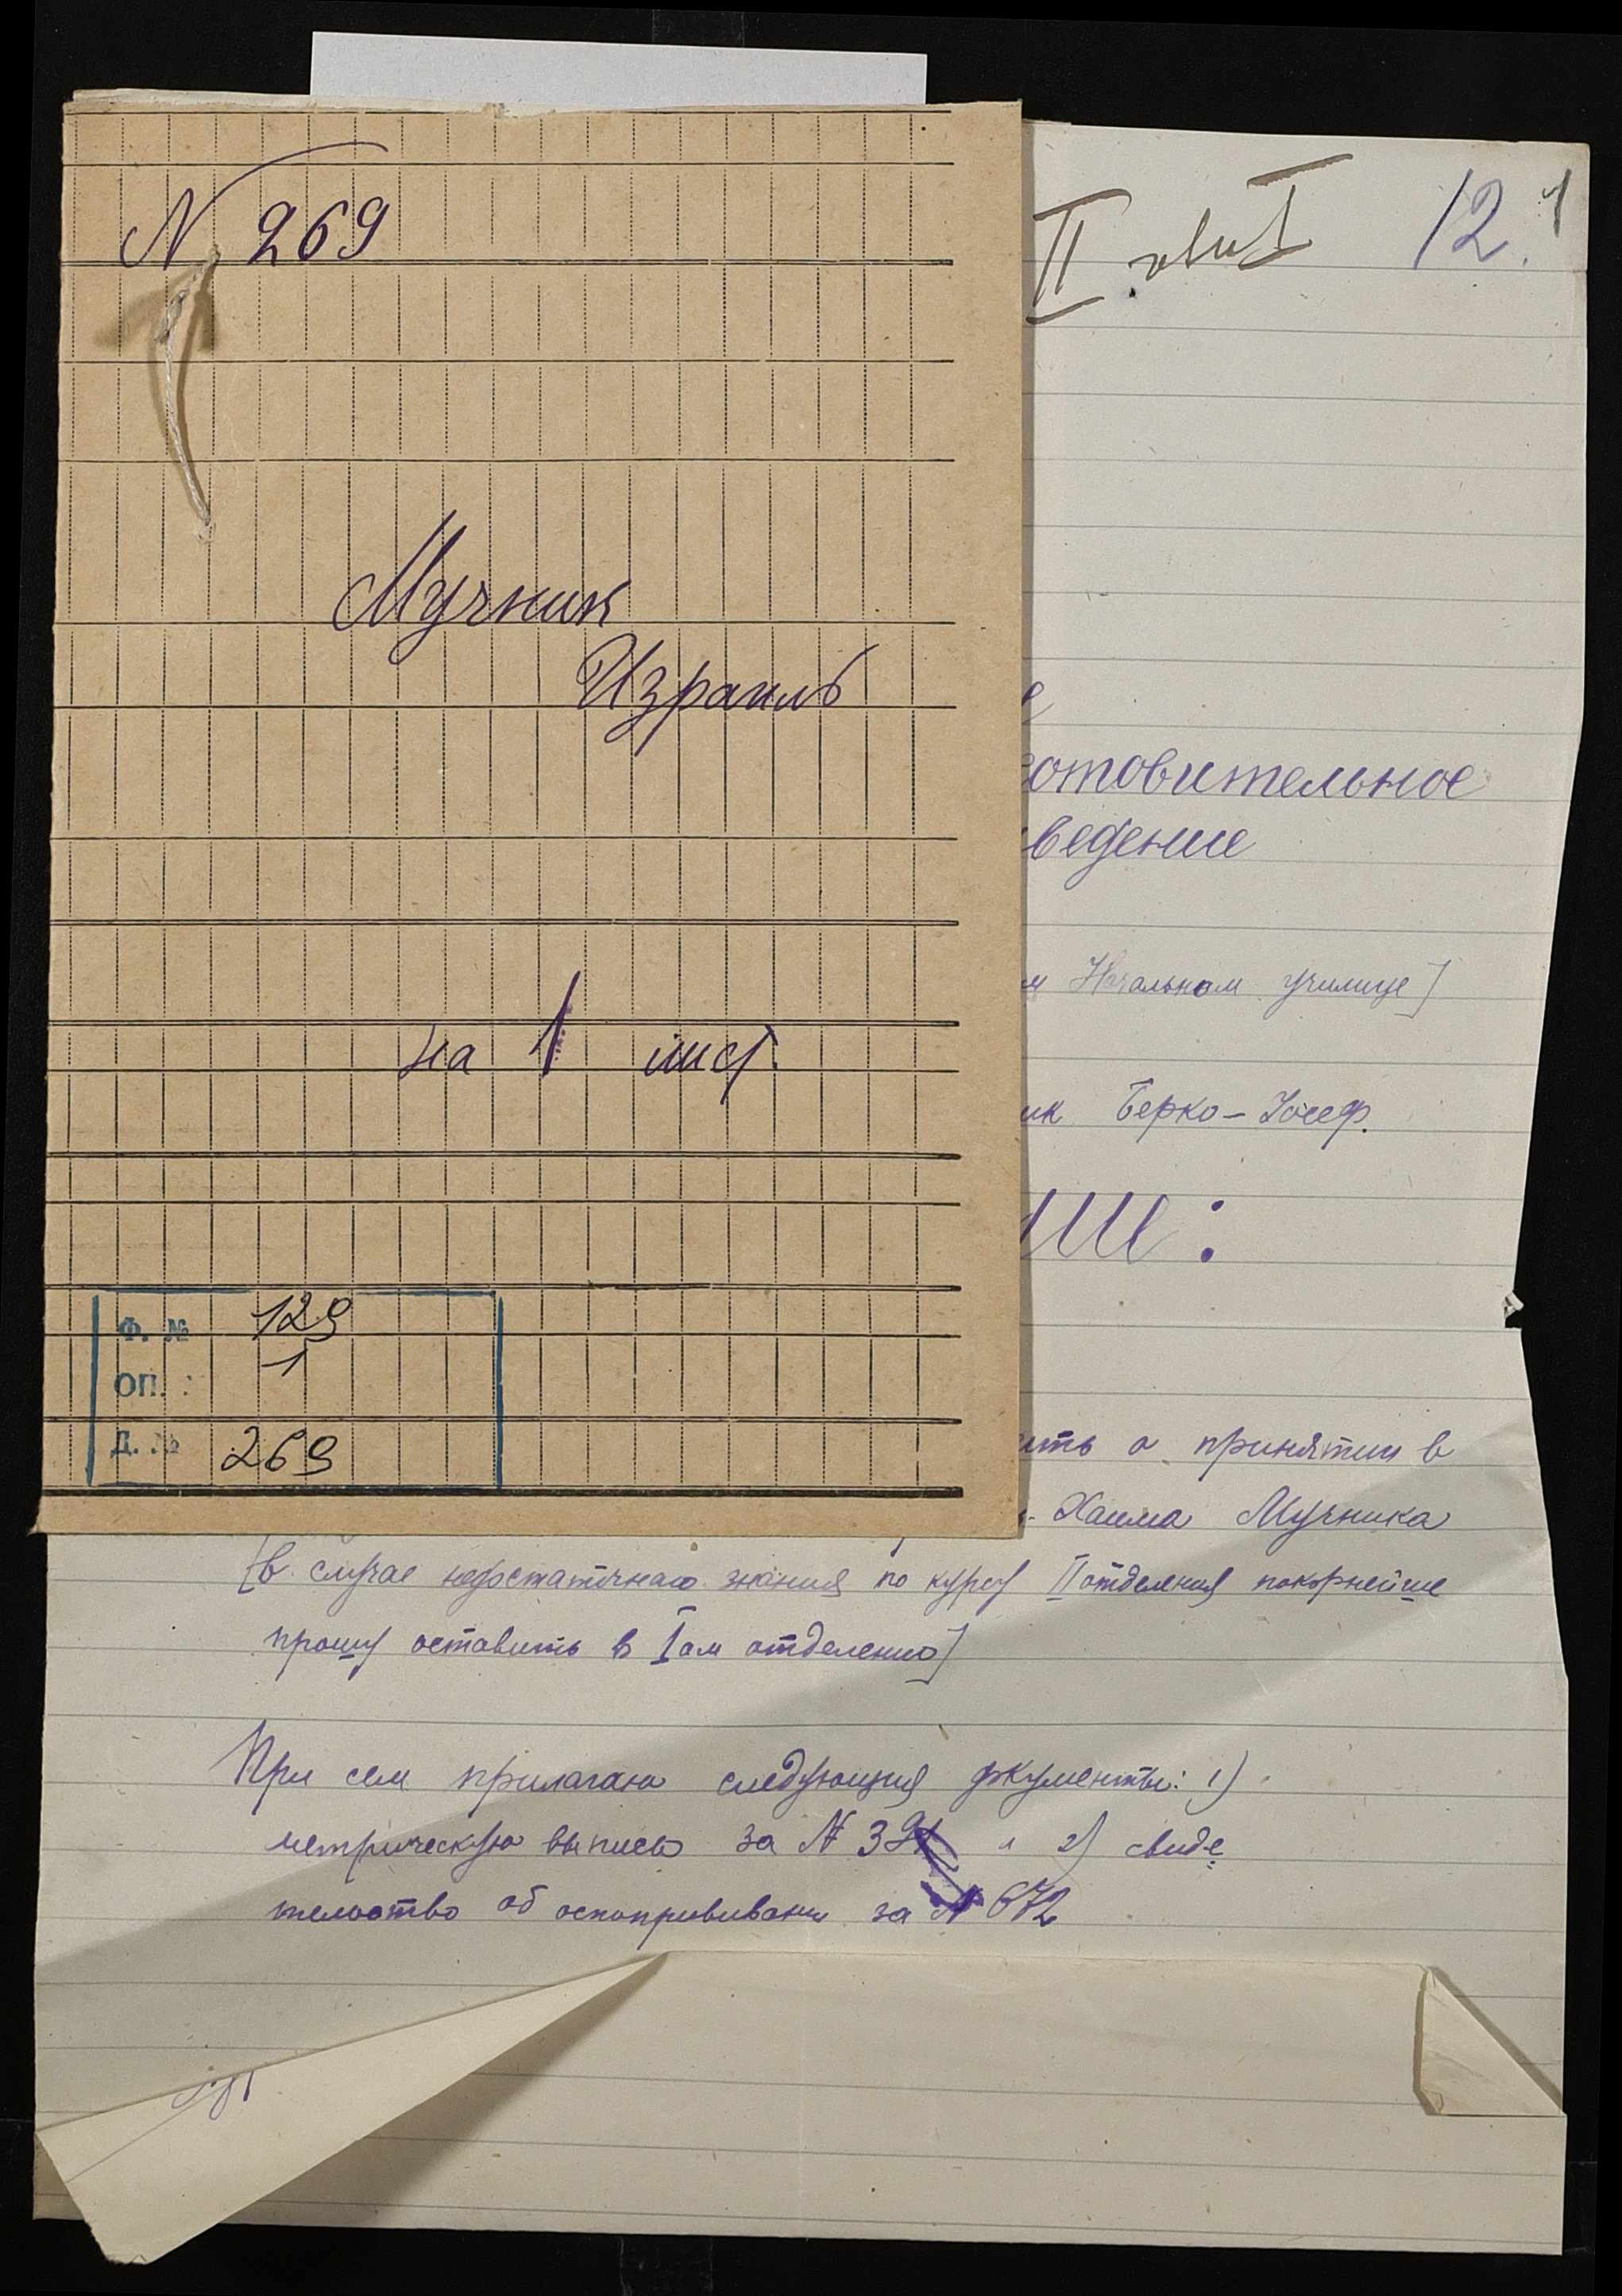 № 269
Мучник
Израиль
на 1 лист.
Ф. № 129
ОП. : 1
Д. № 269
II 12. 1
отовительное
ведение
м Начальном училище]
ик Берко-Іосеф.
ить о принятии в
Хаима Мучника
[в случае недостаточнаго знания по курсу II отделения покорнейше
прошу оставить в Iом отделению]
При сем прилагаю следующия документы: 1)
метрическую выпись за № и 2) свиде
тельство об оспопрививании за № 672